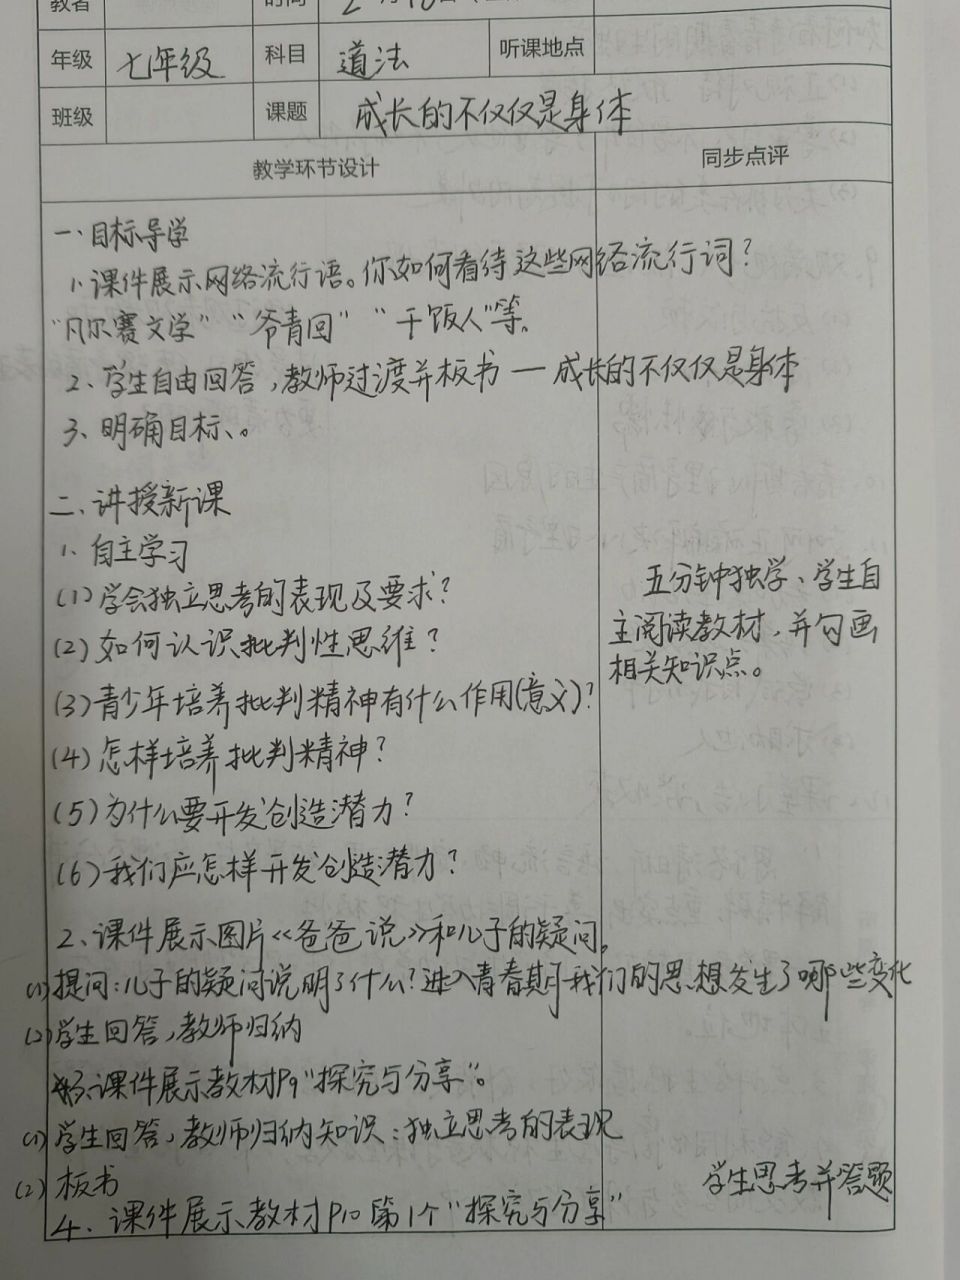 教者 时间 2月10日
年级 七年级 科目 道法 听课地点
班级 课题 成长的不仅仅是身体
教学环节设计 同步点评
一、目标导学
1、课件展示网络流行语。你如何看待这些网络流行词?
"凡尔赛文学" "爷青回" "干饭人"等。
2、学生自由回答,教师过渡并板书—成长的不仅仅是身体
3、明确目标、。
二、讲授新课
1、自主学习
(1)学会独立思考的表现及要求?
(2)如何认识批判性思维?
(3)青少年培养批判精神有什么作用(意义)?
(4)怎样培养批判精神?
(5)为什么要开发创造潜力?
(6)我们应怎样开发创造潜力?
五分钟独学、学生自
主阅读教材,并勾画
相关知识点。
2、课件展示图片《爸爸说》和儿子的疑问。
(1)提问:儿子的疑问说明了什么?进入青春期我们的思想发生了哪些变化
(2)学生回答,教师归纳
3、课件展示教材P9"探究与分享"。
(1)学生回答,教师归纳知识:独立思考的表现
(2)板书
学生思考并答题
4、课件展示教材P10第1个"探究与分享"